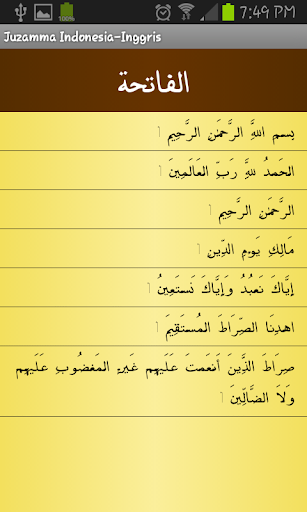 7:49 PM
Juzamma Indonesia-Inggris
الفاتحة
بِسمِ اللَّهِ الرَّحمَٰنِ الرَّحِيمِ
الحَمدُ لِلَّهِ رَبِّ العَالَمِينَ
الرَّحمَٰنِ الرَّحِيمِ
مَالِكِ يَومِ الدِّينِ
إِيَّاكَ نَعبُدُ وَإِيَّاكَ نَستَعِينُ
اهدِنَا الصِّرَاطَ المُستَقِيمَ
صِرَاطَ الَّذِينَ أَنعَمتَ عَلَيهِم غَيرِ المَغضُوبِ عَلَيهِم
وَلَا الضَّالِّينَ